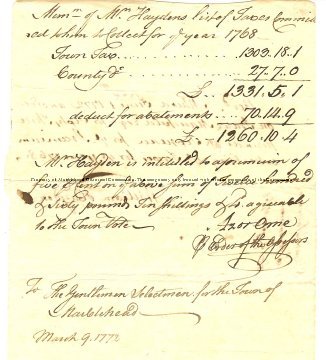 Mem.m of Mr. Haydens list of Taxes Commit
ed to him to Collect for ye year 1768
Town Tax 1303.18.1
County Do 27.7.0
£ 1331.5.1
deduct for abatements 70.14.9
£ 1260.10.4
Mr. Hayden is intitled to a premium of
five Cent on ye above sum of Twelve hundred
& Sixty pounds Ten shillings & 4 agreeable
to the Town Vote
Azor Orne
Order of the Assessors
To The Gentlemen Selectmen for the Town of
Marblehead
March 9. 1772